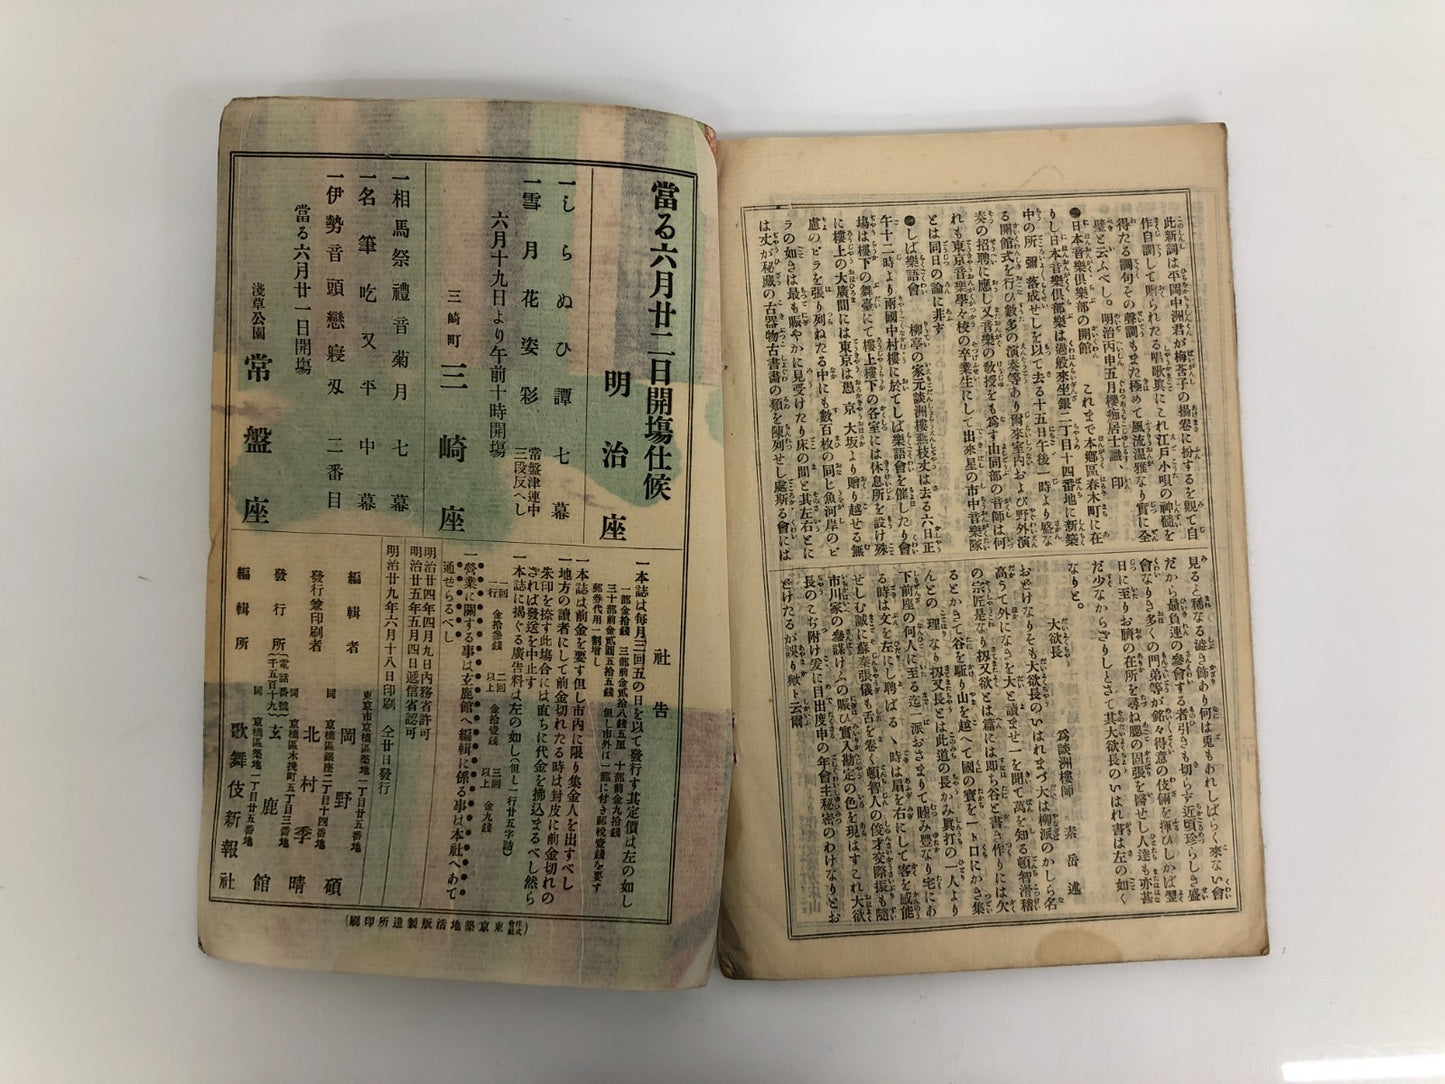 此新詞は平岡中洲君が梅莟子の揚卷に扮するを觀て自
作自調して贈られたる唱歌眞にこれ江戸小唄の神髓を
得たる調句その聲調もまた極めて風流温雅なり實に全
璧と云ふべし。明治丙申五月櫻痴居士識、印
●日本音樂倶樂部の開館 これまで本鄕區春木町に在
りし日本音樂倶樂部は過般來坐銀二丁目十四番地に新築
中の所彌落成せしを以て去る十五日午後一時より盛な
る開館式を行ひ數多の演奏等あり爾來室内および野外演
奏の招聘に應し又音樂の敎授をも爲す由同部の音師は何
れも東京音樂學を校の卒業生にして出來星の市中音樂隊
とは同日の論に非す
●しば樂語會 柳亭の家元談洲樓燕枝丈は去る六日正
午十二時より兩國中村樓に於てしば樂語會を催したり會
塲は樓下の舞臺にて樓上樓下の各室には休息所を設け殊
に樓上の大廣間には東京は愚京大坂より贈り越せる無
慮のビラを張り列ねたる中にも數百枚の同じ魚河岸のビ
ラの如きは最も賑やかに見受けたり床の間と其左右とに
は丈が秘藏の古器物古書畫の類を陳列せし處斯る會には
見ると稀なる澁き飾あり何は兎もあれしばらく來ない會
だから最負連の參會する者引きも切らず近頃珍らしき盛
會なりき多くの門弟等が銘々得意の伎倆を揮ひしかば翌
日に至りお臍の在所を尋ね腮の固張を醫せし人達も亦甚
だ少なからざりしとさて其大欲長のいはれ書は左の如く
なりと。
大欲長 爲談洲樓師 素岳述
おとけなりそも大欲長のいはれまづ大は柳派のかしら名
高うて外になきを大と讀ませ一を聞て萬を知る頓智滑稽
の宗匠是なり扨又欲とは篇には即ち谷と書き作りには欠
るとかきて谷を駈り山を越へて國の寶を一ト口にかき集
んとの理なり扨又長とは此道の長かみ眞打の一人より
下前座の何人に至る迄一派おさまりて睦み豐なり宅にあ
る時は文を左にし聘ばるゝ時は扇を右にして客を感能
せしむ誠に蘇秦張儀も舌を卷く頓智人の俊才交際振も隨
市川家の參謀けふの賑ひ實入勘定の色を現はすこれ大欲
長のこぢ附け爰に目出度申の年會主秘密のわけなりとお
とけたるが誤り歟ト云爾
當る六月廿二日開塲仕候
明治座
一しらぬひ譚 七幕
一雪月花姿彩 常盤津連中
三段反へし
六月十九日より午前十時開塲
三崎町 三崎座
一相馬祭禮音菊月 七幕
一名筆吃又平 中幕
一伊勢音頭戀寝刄 二番目
當る六月廿一日開塲
淺草公園 常盤座
社告
一本誌は毎月三回五の日を以て發行す其定價は左の如し
一部金拾錢 三部前金貳拾八錢五厘 十部前金九拾錢
三十部前金貳圓五拾五錢 但し市外は一部に付き郵税壹錢を要す
郵券代用一割增し
一本誌は前金を要す但し市内に限り集金人を出すべし
一地方の讀者にして前金切れたる時は封皮に前金切れの
朱印を捺す此塲合には直ちに代金を拂込まるべし然ら
ざれば發送を中止す
一本誌に揭ぐる廣告料は左の如し(但し一行廿五字詰)
一回 金拾參錢 二回以上 金拾壹錢 三回以上 金九錢
一行
一營業に關する事は玄鹿館へ編輯に係る事は本社へあて
通せらるべし
明治廿四年四月九日内務省許可
明治廿五年五月四日遞信省認可
明治廿九年六月十八日印刷 仝廿日發行
東京市京橋區築地一丁目廿五番地
編輯者 岡野碩
同 京橋區銀座二丁目十四番地
發行兼印刷者 北村季晴
同 京橋區木挽町五丁目三番地
發行所 (電話番號 千五百十九) 玄鹿館
同 京橋區築地一丁目廿五番地
編輯所 歌舞伎新報社
(株式會社東京築地活版製造所印刷)